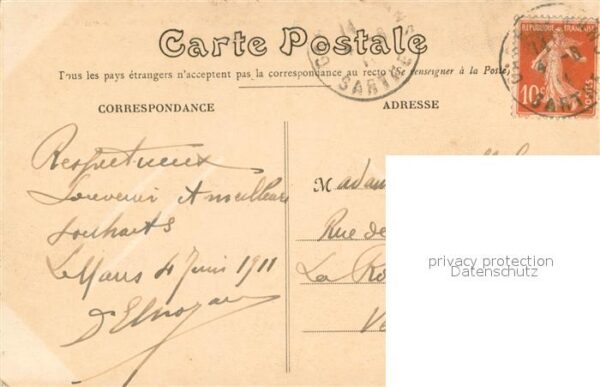 Carte Postale
Tous les pays étrangers n'acceptent pas la correspondance au recto (Se renseigner à la Poste)
CORRESPONDANCE
ADRESSE
REPUBLIQUE FRANÇAISE
10
POSTES
SARTHE
SART
Respectueux
Souvenir et meilleurs
souhaits
Le Mans 4 Juin 1911
Madam
Rue de
La Ro
privacy protection
Datenschutz